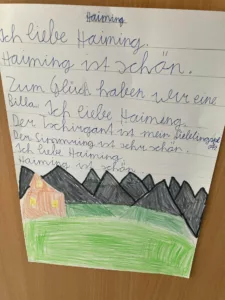 Haiming
Ich liebe Haiming.
Haiming ist schön.
Zum Glück haben wir eine
Billa. Ich liebe Haiming.
Der Tschirgant ist mein
Der ist sehr schön.
Ich liebe Haiming.
Haiming ist schön.